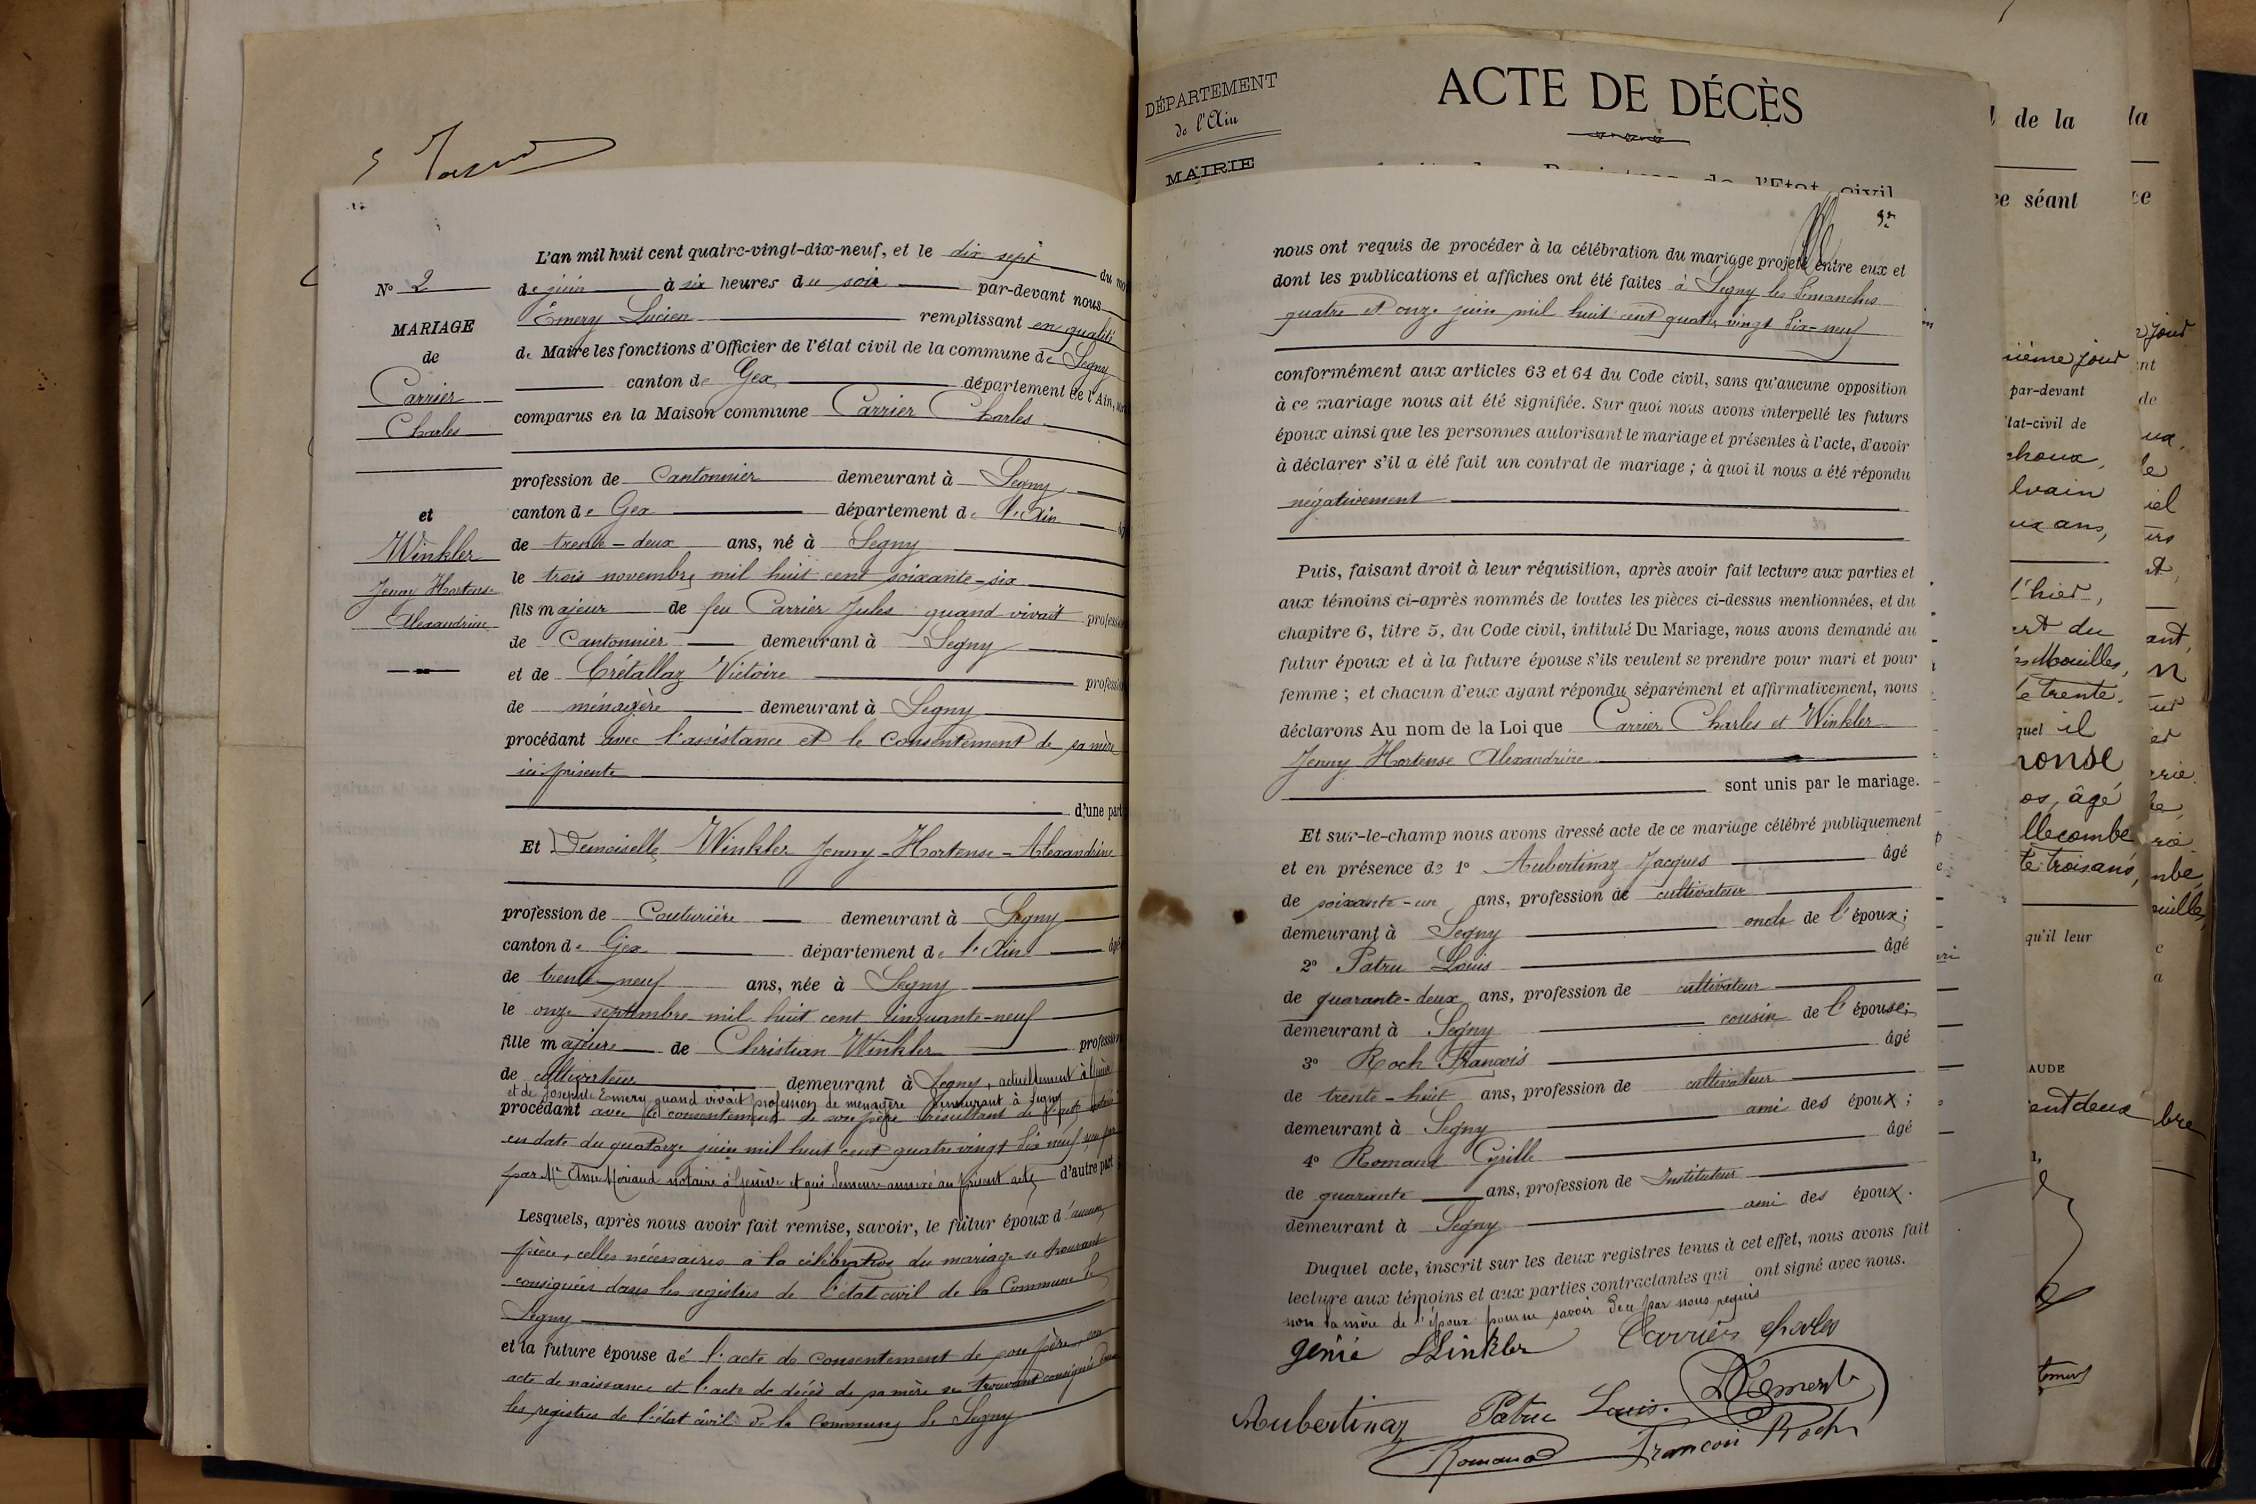 L'an mil huit cent quatre-vingt-dix-neuf, et le dix sept du
N° 2
de juin à six heures du soir par-devant nous
Émery Lucien remplissant en qualité
MARIAGE
de Maire les fonctions d'Officier de l'état civil de la commune de Segny
de
canton de Gex département de l'Ain,
Carrier
comparus en la Maison commune Carrier Charles
Charles
profession de Cantonnier demeurant à Segny
et
canton de Gex département de l'Ain
Winkler
de trente-deux ans, né à Segny
Jenny Hortense
le trois novembre mil huit cent soixante-six
Alexandrine
fils majeur de feu Carrier Jules quand vivait profession
de Cantonnier demeurant à Segny
et de Crétallaz Victoire profession
de ménagère demeurant à Segny
procédant avec l'assistance et le consentement de sa mère
ici présente
d'une part
Et Demoiselle Winkler Jenny-Hortense-Alexandrine
profession de Couturière demeurant à Segny
canton de Gex département de l'Ain âgé
de trente-neuf ans, née à Segny
le onze septembre mil huit cent cinquante-neuf
fille majeure de Christian Winkler profession
de cultivateur demeurant à Segny, actuellement à
et de Josephte Emery quand vivait profession de ménagère demeurant à Segny
procédant avec le consentement de son père résultant de
en date du quatorze juin mil huit cent quatre vingt dix neuf
par Me notaire à Genève et qui demeure annexé au présent acte d'autre part
Lesquels, après nous avoir fait remise, savoir, le futur époux d'aucune
pièce, celles nécessaires à la célébration du mariage se trouvant
consignées dans les registres de l'état civil de la Commune de
Segny
et la future épouse de l'acte de consentement de son père, son
acte de naissance et l'acte de décès de sa mère se trouvant consignés dans
les registres de l'état civil de la Commune de Segny
DÉPARTEMENT
de l'Ain
MAIRIE
ACTE DE DÉCÈS
de l'Etat civil
nous ont requis de procéder à la célébration du mariage projeté entre eux et
dont les publications et affiches ont été faites à Segny les dimanches
quatre et onze juin mil huit cent quatre vingt dix-neuf
conformément aux articles 63 et 64 du Code civil, sans qu'aucune opposition
à ce mariage nous ait été signifiée. Sur quoi nous avons interpellé les futurs
époux ainsi que les personnes autorisant le mariage et présentes à l'acte, d'avoir
à déclarer s'il a été fait un contrat de mariage ; à quoi il nous a été répondu
négativement
Puis, faisant droit à leur réquisition, après avoir fait lecture aux parties et
aux témoins ci-après nommés de toutes les pièces ci-dessus mentionnées, et du
chapitre 6, titre 5, du Code civil, intitulé Du Mariage, nous avons demandé au
futur époux et à la future épouse s'ils veulent se prendre pour mari et pour
femme ; et chacun d'eux ayant répondu séparément et affirmativement, nous
déclarons Au nom de la Loi que Carrier Charles et Winkler
Jenny Hortense Alexandrine
sont unis par le mariage.
Et sur-le-champ nous avons dressé acte de ce mariage célébré publiquement
et en présence de 1° Aubertinaz Jacques âgé
de soixante-un ans, profession de cultivateur
demeurant à Segny oncle de l'époux ;
2° Patru Louis âgé
de quarante-deux ans, profession de cultivateur
demeurant à Segny cousin de l'épouse ;
3° Roch François âgé
de trente-huit ans, profession de cultivateur
demeurant à Segny ami des époux ;
4° Romand Cyrille âgé
de quarante ans, profession de Instituteur
demeurant à Segny ami des époux.
Duquel acte, inscrit sur les deux registres tenus à cet effet, nous avons fait
lecture aux témoins et aux parties contractantes qui ont signé avec nous.
non la mère de l'époux pour ne savoir de ce par nous requis
génie Winkler Carrier charles
Aubertinaz Patru Louis. LEmery
Romand François Roch
de la
séant
par-devant
état-civil de
qu'il leur